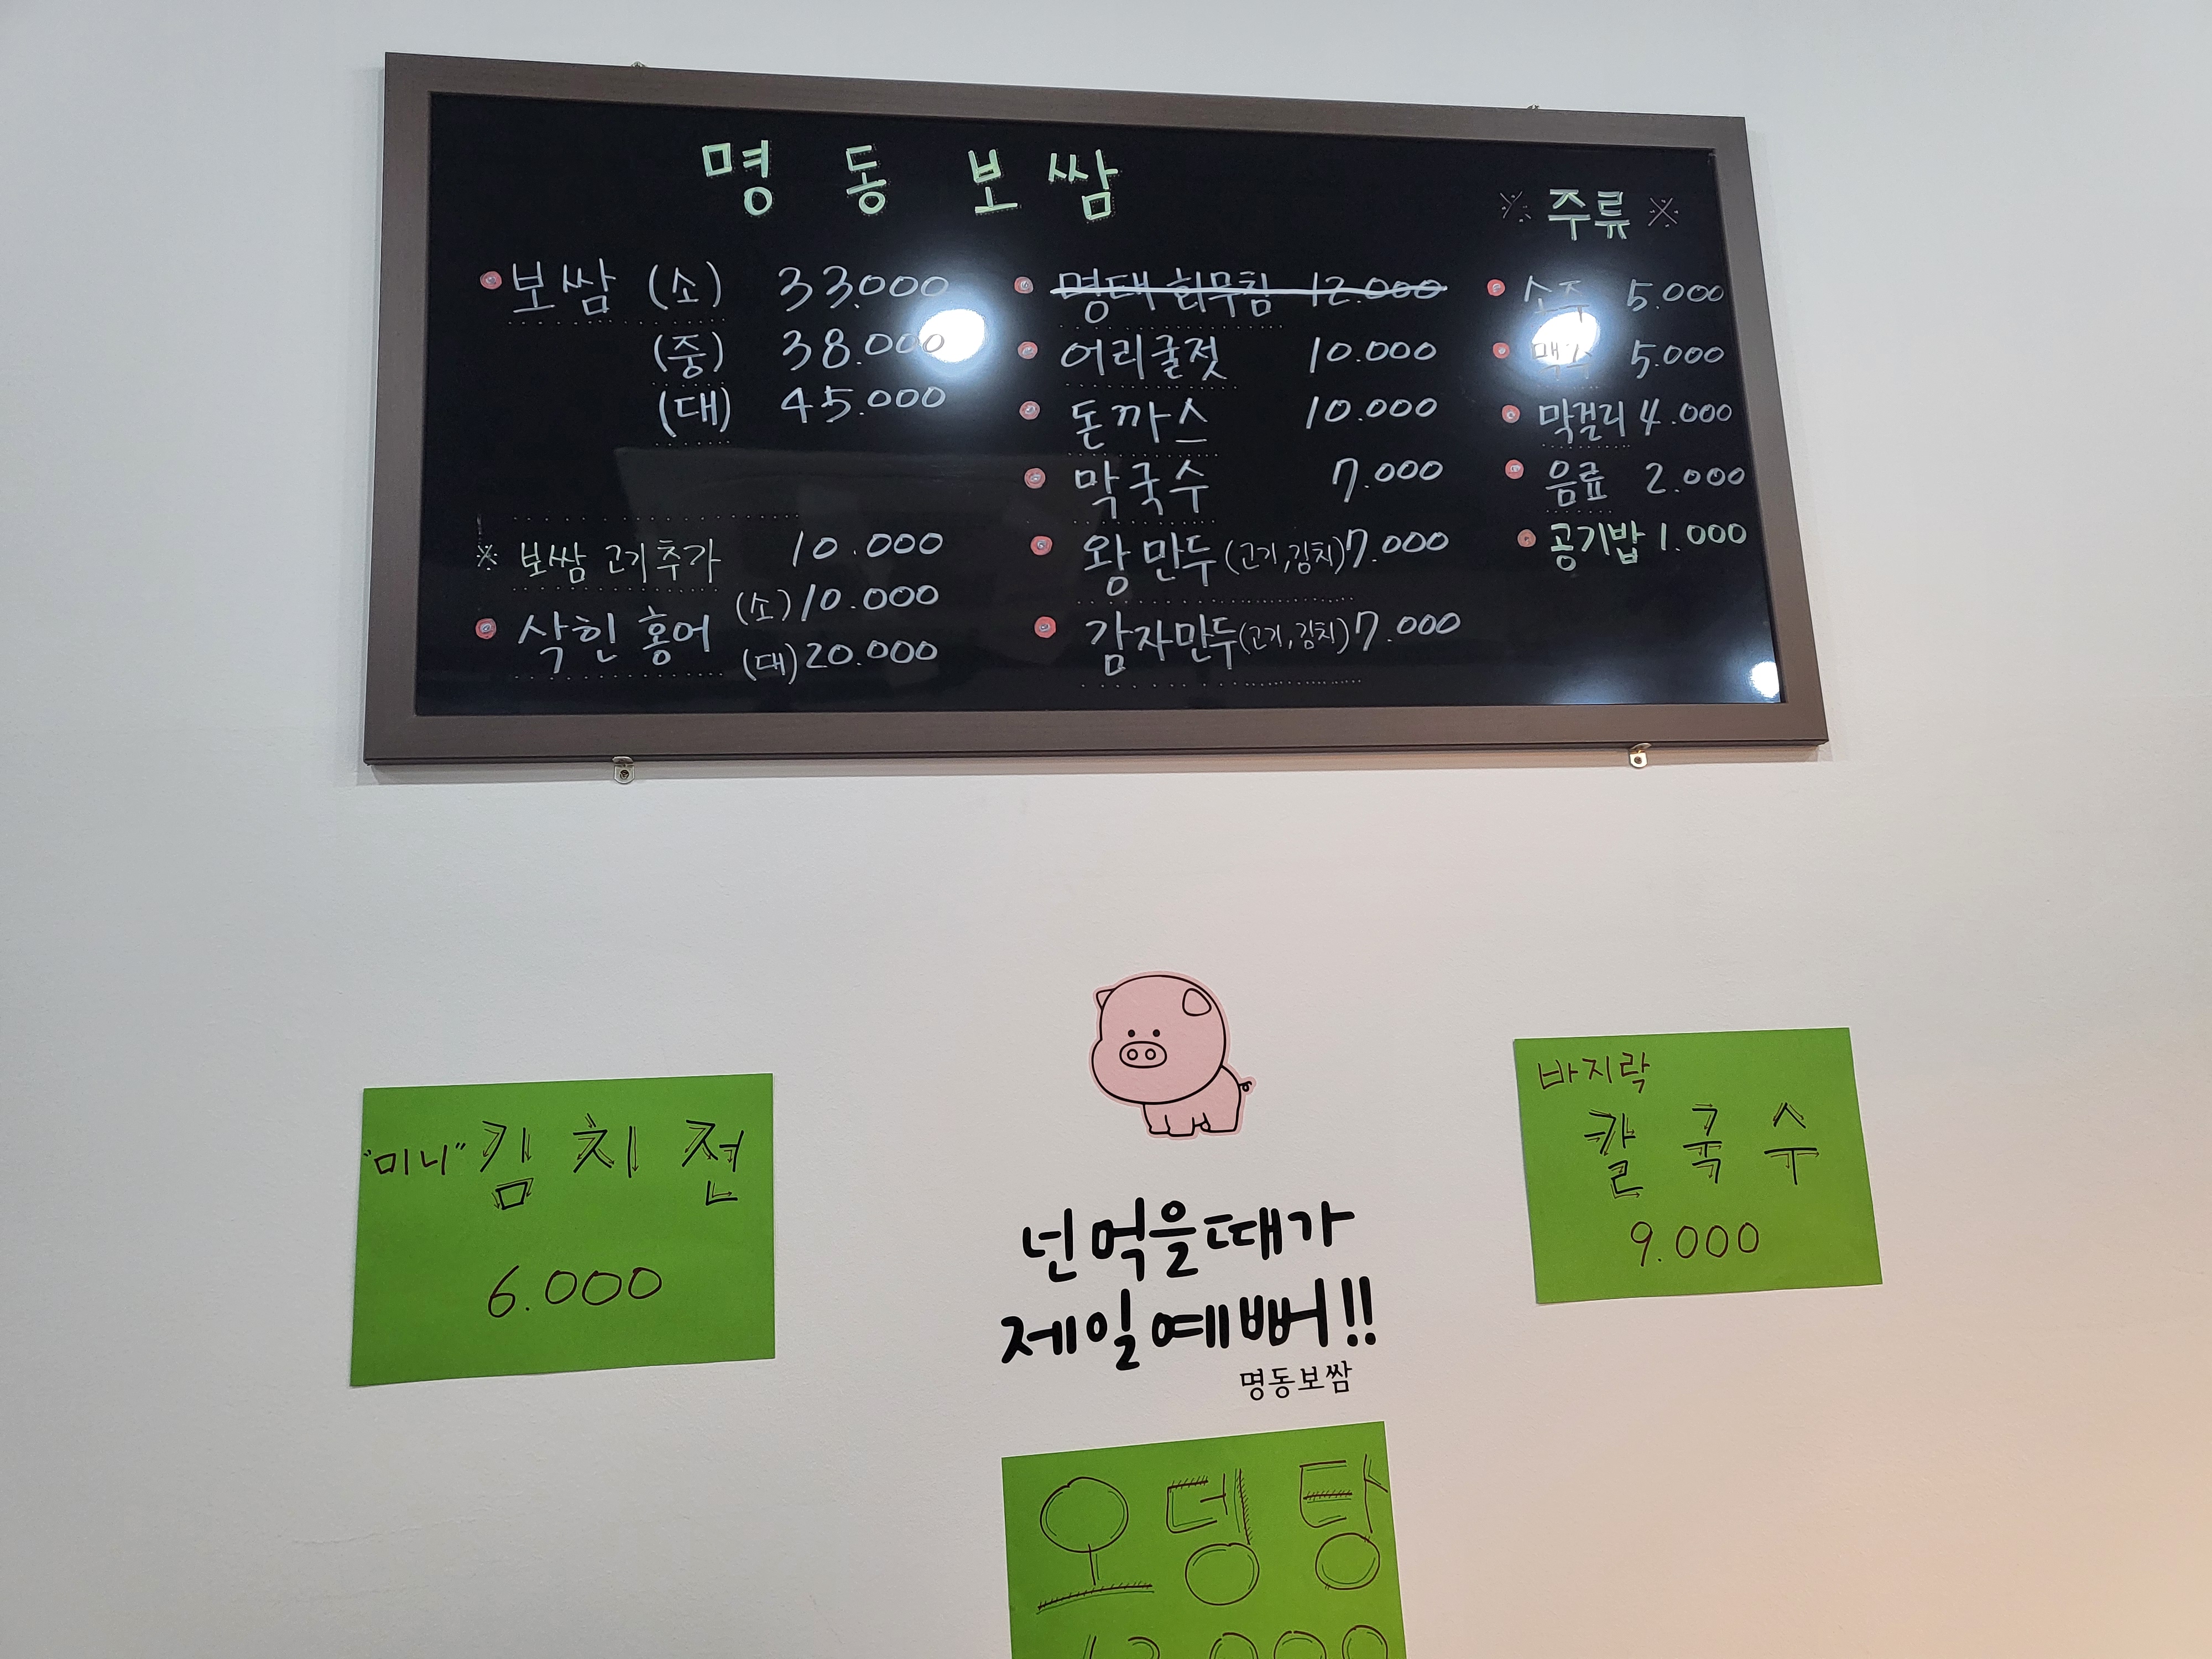 명동보쌈
보쌈 (소) 33.000
(중) 38.000
(대) 45.000
※ 보쌈 고기추가 10.000
삭힌 홍어 (소) 10.000
(대) 20.000
명태회무침 12.000
어리굴젓 10.000
돈까스 10.000
막국수 7.000
왕만두 (고기,김치) 7.000
감자만두 (고기,김치) 7.000
※ 주류 ※
소주 5.000
맥주 5.000
막걸리 4.000
음료 2.000
공기밥 1.000
"미니" 김치전
6.000
넌 먹을때가
제일예뻐!!
명동보쌈
바지락
칼국수
9.000
오뎅탕